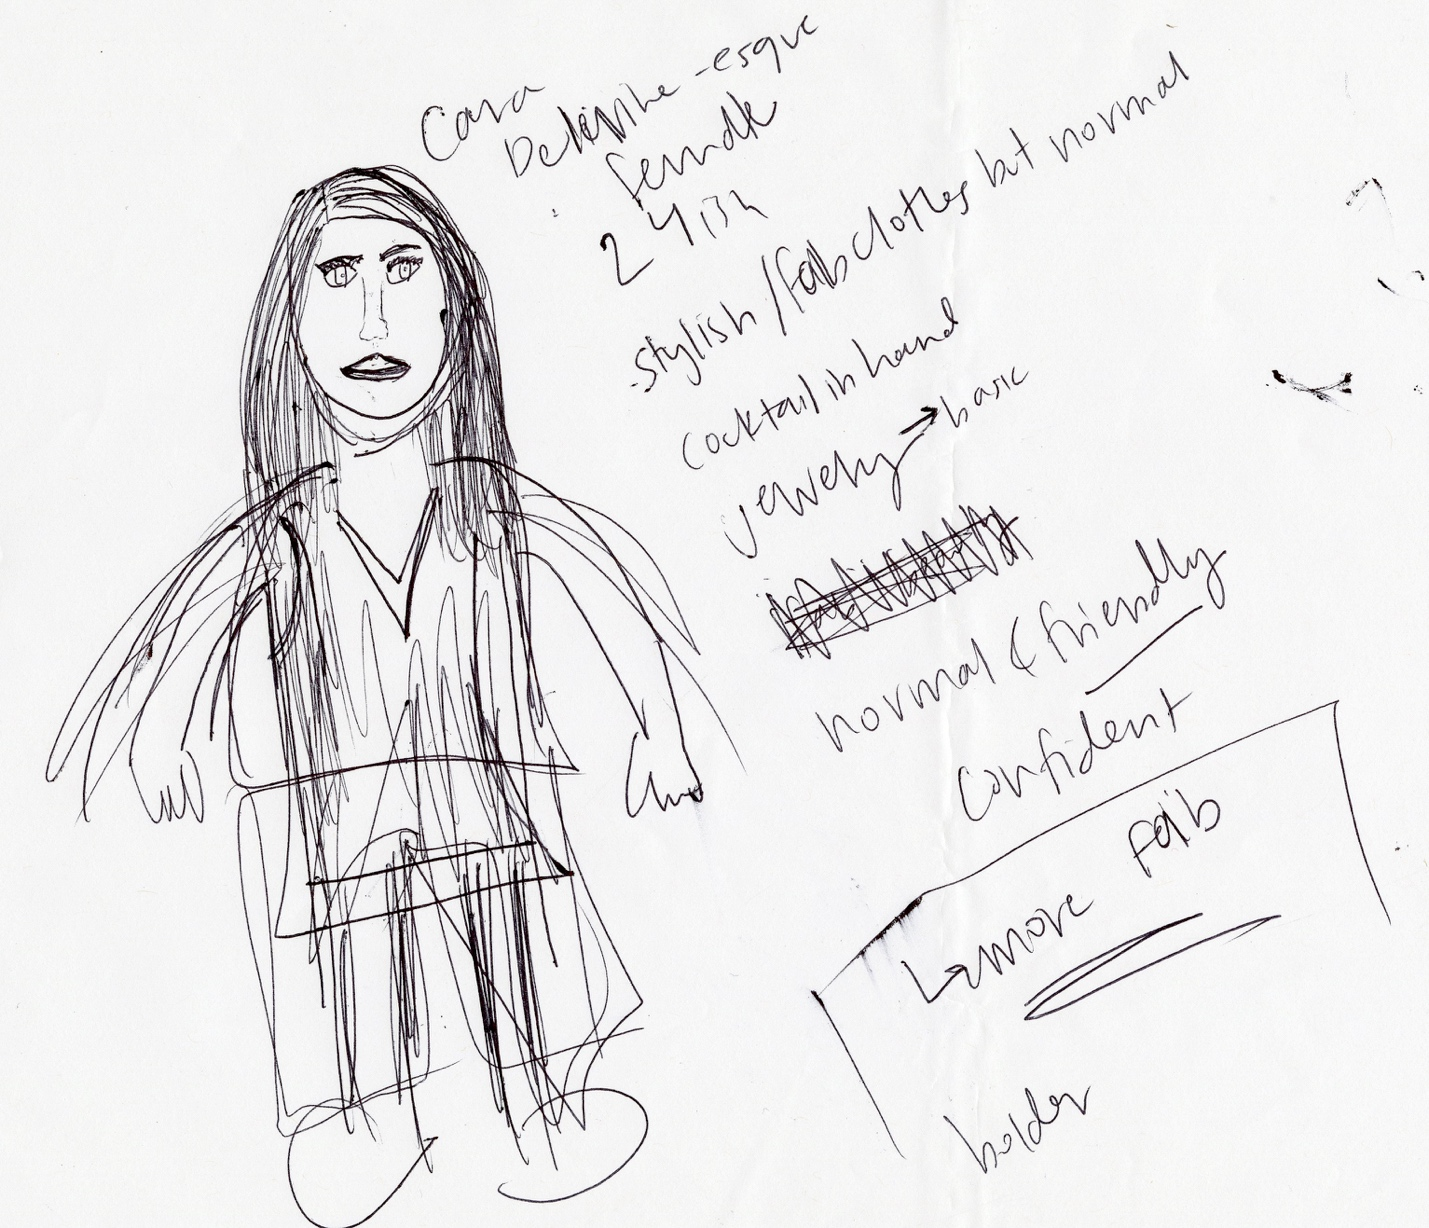 Cara
Delevine-esque
female
24ish
stylish/fab clothes but normal
cocktail in hand
jewelry → basic
normal & friendly
confident
fab
bolder